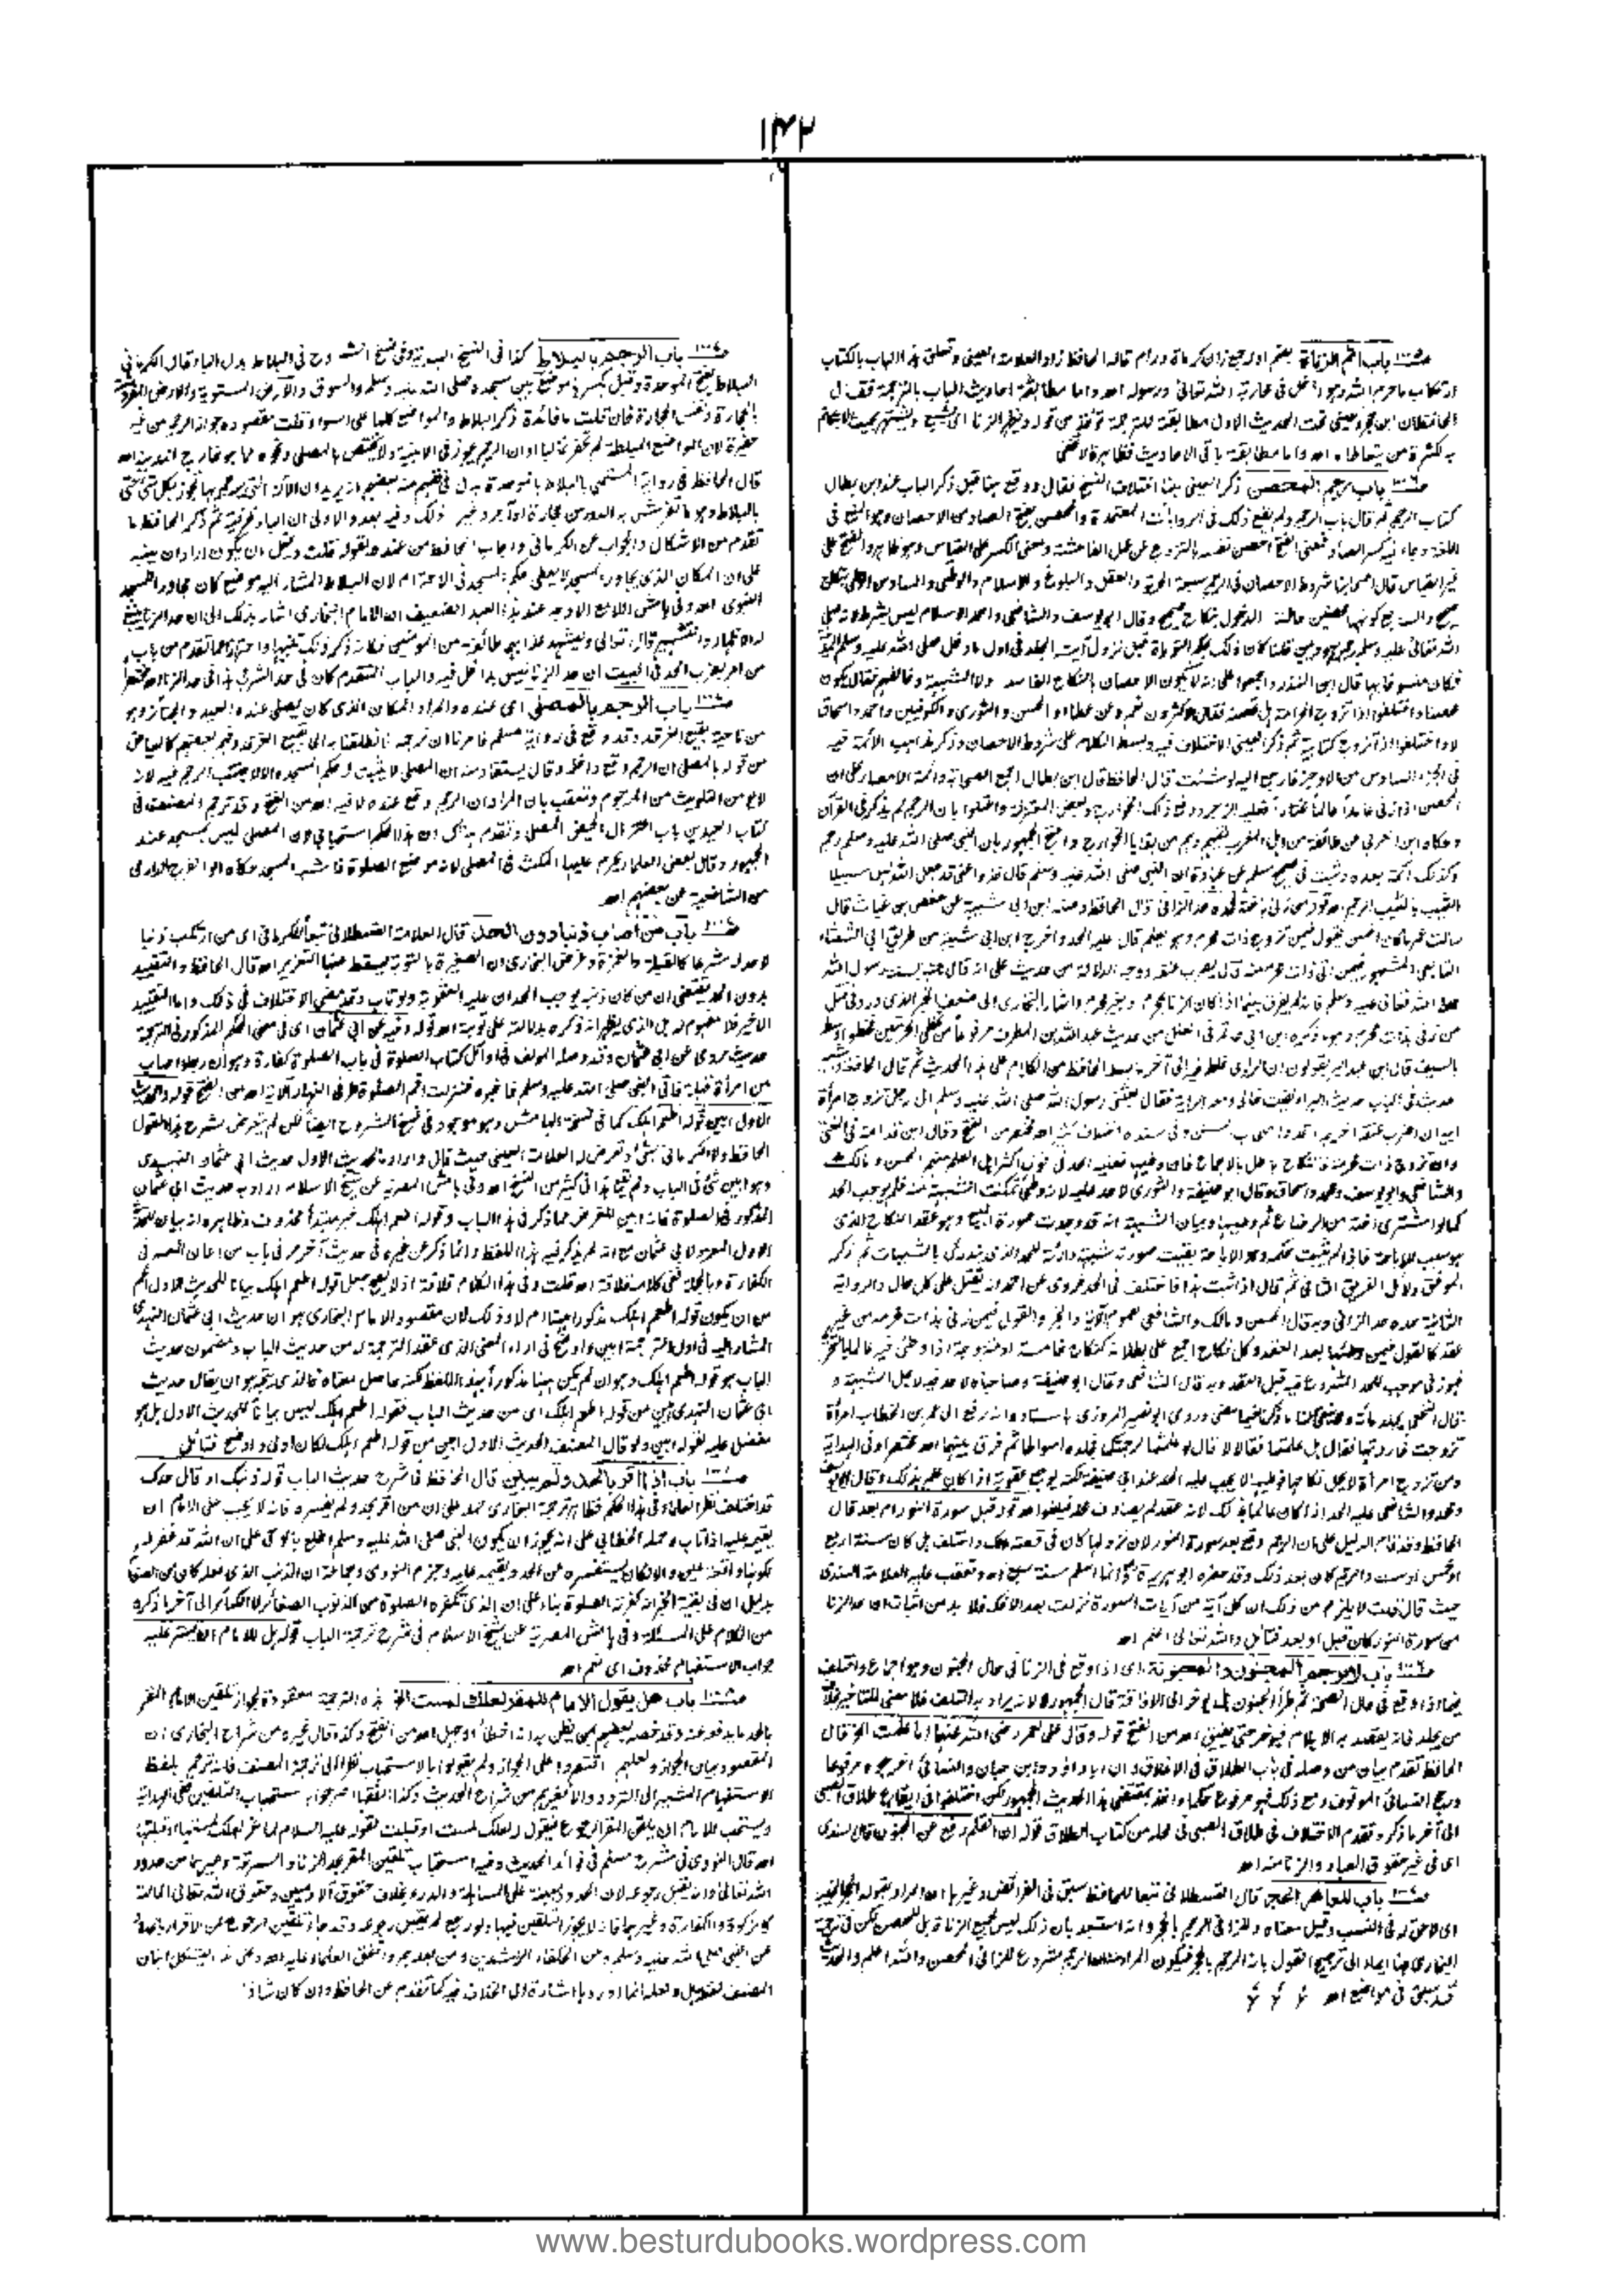 ۱۴۲
باب اثم الزناة بضم اوله جمع زان كرماة ورام قاله الحافظ زاد العلامة العينى وتعلق هذا الباب بالكتاب
ارتكاب ما حرم الله وهو داخل فى محاربة الله تعالىٰ ورسوله اھ واما مطابقة احاديث الباب بالترجمة فقد قال
الحافظان ابن حجر والعينى تحت الحديث الاول مطابقته للترجمة تؤخذ من قوله ويظهر الزنا اى يشيع ويشتهر بحيث لا يتكاتم
به لكثرة من يتعاطاه اھ واما مطابقة باقى الاحاديث فظاهرة لا تخفى
باب رجم المحصن ذكر العينى هنا اختلاف النسخ فقال ووقع هنا قبل ذكر الباب عند ابن بطال
كتاب الرجم ثم قال باب الرجم ولم يقع ذلك فى الروايات المعتمدة والمحصن بفتح الصاد من الاحصان وهو المنع فى
اللغة وجاء فيه كسر الصاد فمعنى الفتح احصن نفسه بالتزوج عن عمل الفاحشة ومعنى الكسر على القياس وهو ظاهر والفتح على
غير القياس قال اصحابنا شروط الاحصان فى الرجم سبعة الحرية والعقل والبلوغ والاسلام والوطى والسادس الوطى بنكاح
صحيح والسابع كونهما محصنين حالة الدخول بنكاح صحيح وقال ابو يوسف والشافعى واحمد الاسلام ليس بشرط لانه صلى
الله تعالىٰ عليه وسلم رجم يهوديين قلنا كان ذلك بحكم التوراة قبل نزول آية الجلد فى اول ما دخل صلى الله عليه وسلم المدينة
فكان منسوخا بها قال ابن المنذر واجمعوا على انه لا يكون الاحصان بالنكاح الفاسد ولا الشبهة وخالفهم فقال يكون
محصنا واختلفوا اذا تزوج الحرامة هل تحصنه فقال الاكثرون نعم وعن عطاء والحسن والثورى والكوفيين واحمد واسحاق
لا واختلفوا اذا تزوج كتابية ثم ذكر العينى الاختلاف فيه وبسط الكلام على شروط الاحصان وذكر مذاهب الائمة فيه
فى الجزء السادس من الاوجز فارجع اليه لو شئت قال الحافظ قال ابن بطال اجمع الصحابة وائمة الامصار على ان
المحصن اذا زنى عامدا عالما مختارا فعليه الرجم ودفع ذلك الخوارج وبعض المعتزلة واعتلوا بان الرجم لم يذكر فى القرآن
وحكاه ابن العربى عن طائفة من اهل المغرب لقيهم وهم من بقايا الخوارج واحتج الجمهور بان النبى صلى الله عليه وسلم رجم
وكذلك الائمة بعده وثبت فى صحيح مسلم عن عبادة ان النبى صلى الله عليه وسلم قال خذوا عنى قد جعل الله لهن سبيلا
الثيب بالثيب الرجم اھ قوله من زنى باخته فحده حد الزانى قال الحافظ وصله ابن ابى شيبة عن حفص بن غياث قال
سألت عمر ما كان الحسن يقول فيمن تزوج ذات محرم وهو يعلم قال عليه الحد واخرج ابن ابى شيبة من طريق ابى الشعثاء
التابعى المشهور فيمن اتى ذات محرم منه قال يضرب عنقه ووجه الدلالة من حديث على انه قال رجمتها بسنة رسول الله
صلى الله تعالىٰ عليه وسلم فانه لم يفرق بينما اذا كان الزنا بمحرم او بغير محرم واشار البخارى الى ضعف الخبر الذى ورد فى قتل
من زنى بذات محرم وهو ما ذكره ابن ابى حاتم فى العلل من حديث عبد الله بن المطرف مرفوعا من تخطى الحرمتين فخطوا وسطه
بالسيف قال ابن عبد البر يقولون ان الراوى غلط فيه الى آخر ما بسط الحافظ من الكلام على هذا الحديث ثم قال الحافظ واشهر
حديث فى الباب حديث البراء لقيت خالى ومعه الراية فقال بعثنى رسول الله صلى الله عليه وسلم الى رجل تزوج امرأة
ابيه ان اضرب عنقه اخرجه احمد واصحاب السنن وفى سنده اختلاف كثير اھ مختصر من الفتح وقال ابن قدامة فى المغنى
وان تزوج ذات محرمه فالنكاح باطل بالاجماع فان وطئها فعليه الحد فى قول اكثر اهل العلم منهم الحسن ومالك
والشافعى وابو يوسف ومحمد واسحاق وقال ابو حنيفة والثورى لا حد عليه لانه وطى تمكنت الشبهة منه فلم يوجب الحد
كما لو اشترى اخته من الرضاع ثم وطيها وبيان الشبهة انه قد وجدت صورة المبيح وهو عقد النكاح الذى
هو سبب للاباحة فاذا لم يثبت حكمه وهو الاباحة بقيت صورته شبهة دارئة للحد الذى يندرئ بالشبهات ثم ذكر
الموفق دلائل الفريق الثانى ثم قال اذا ثبت هذا فاختلف فى الحد فروى عن احمد انه يقتل على كل حال والرواية
الثانية حده حد الزانى وبه قال الحسن ومالك والشافعى لعموم الآية والخبر والقول فيمن زنى بذات محرمه من غير
عقد كالقول فيمن وطئها بعد العقد وكل نكاح اجمع على بطلانه كنكاح خامسة او متزوجة اذا وطئ فيه عالما بالتحريم
فهو زنى موجب للحد المشروع فيه قبل العقد وبه قال الشافعى وقال ابو حنيفة وصاحباه لا حد فيه لاجل الشبهة و
قال النخعى يجلد مائة ولا ينفى ولنا ما ذكرنا فيما مضى وروى ابو نصر المروزى باسناده انه رفع الى عمر بن الخطاب امرأة
تزوجت فى عدتها فقال هل علمتما فقالا لا قال لو علمتما لرجمتكما فجلده اسواطا ثم فرق بينهما اھ مختصرا وفى الهداية
ومن تزوج امرأة لا يحل نكاحها فوطيها لا يجب عليه الحد عند ابى حنيفة لكنه يوجع عقوبة اذا كان علم بذلك وقال ابو يوسف
ومحمد والشافعى عليه الحد اذا كان عالما بذلك لانه عقد لم يصادف محله فيلغو اھ قوله قبل سورة النور ام بعد قال
الحافظ وقد قام الدليل على ان الرجم وقع بعد سورة النور لان نزولها كان فى قصة الافك واختلف هل كان سنة اربع
او خمس او ست والرجم كان بعد ذلك وقد حضره ابو هريرة وانما اسلم سنة سبع اھ وتعقب عليه العلامة السندى
حيث قال قلت لا يلزم من ذلك ان كل آية من آيات السورة نزلت بعد الافك فلا بد من اثبات ان حد الزنا
من سورة النور كان قبل او بعد فتأمل والله تعالىٰ اعلم اھ
باب لا يرجم المجنون والمجنونة اى اذا وقع فى الزنا فى حال الجنون وهو اجماع واختلف
فيما اذا وقع فى حال الصحة ثم طرأ الجنون هل يؤخر الى الافاقة قال الجمهور لا لانه يراد به التلف فلا معنى للتاخير بخلاف
من يجلد فانه يقصد به الايلام فيؤخر حتى يفيق اھ من الفتح قوله وقال على لعمر رضى الله عنهما اما علمت الخ قال
الحافظ تقدم بيان من وصله فى باب الطلاق فى الاغلاق وان ابا داود وابن حبان والنسائى اخرجوه مرفوعا
ورجح النسائى الموقوف ومع ذلك فهو مرفوع حكما واخذ بمقتضى هذا الحديث الجمهور لكن اختلفوا فى ايقاع طلاق الصبى
الى آخر ما ذكر وتقدم الاختلاف فى طلاق الصبى فى محله من كتاب الطلاق قوله ان القلم رفع عن المجنون قال السندى
اى فى غير حقوق العباد والزنا منه اھ
باب للعاهر الحجر قال القسطلانى تبعا للحافظ سبق فى الفرائض وغيرها ان المراد بقوله الحجر الخيبة
اى لا حق له فى النسب وقيل معناه وللزانى الرجم بالحجر وانه استبعد بان ذلك ليس لجميع الزناة بل للمحصن لكن فى ترجمة
البخارى هنا ايماء الى ترجيح القول بانه الرجم بالحجر فيكون المراد منه ان الرجم مشروع للزانى المحصن والله اعلم والحديث
قد سبق فى مواضع اھ
باب الرجم بالبلاط كذا فى النسخ الهندية وفى نسخ الشروح فى البلاط بدل الباء وقال الكرمانى
البلاط بفتح الموحدة وقيل بكسرها موضع بين مسجده صلى الله عليه وسلم والسوق والارض المستوية والارض المفروشة
بالحجارة ونفس الحجارة فان قلت ما فائدة ذكر البلاط والمواضع كلها على السواء قلت مقصوده جواز الرجم من غير
حفيرة لان المواضع المبلطة لم تحفر غالبا او ان الرجم يجوز فى الابنية ولا يختص بالمصلى ونحوه مما هو خارج المدينة اھ
قال الحافظ فى رواية المستملى بالبلاط بالموحدة بدل فى ففهم منه بعضهم انه يريد ان الآلة التى يرجم بها تجوز بكل شئ حتى
بالبلاط وهو ما تفرش به الدور من حجارة او آجر وغير ذلك وفيه بعد والاولى ان الباء ظرفية ثم ذكر الحافظ ما
تقدم من الاشكال والجواب عن الكرمانى واجاب الحافظ من عنده بقوله قلت ويحتمل ان يكون اراد ان ينبه
على ان المكان الذى يجاور المسجد لا يعطى حكم المسجد فى الاحترام لان البلاط المشار اليه موضع كان مجاور المسجد
النبوى اھ وفى هامش اللامع الاوجه عند هذا العبد الضعيف ان الامام البخارى اشار بذلك الى ان حد الزنا ينبغى
له الاظهار والتشهير قال تعالى وليشهد عذابهما طائفة من المؤمنين فكانه ذكر ذلك تنبيها واحترازا عما تقدم من باب
من امر بضرب الحد فى البيت ان حد الزنا ليس بداخل فيه والباب المتقدم كان فى حد الشرب هذا فى حد الزنا اھ مختصرا
باب الرجم بالمصلى اى عنده والمراد المكان الذى كان يصلى عنده العيد والجنائز وهو
من ناحية بقيع الغرقد وقد وقع فى رواية مسلم فامرنا ان نرجمه فانطلقنا به الى بقيع الغرقد وفهم بعضهم كالعياض
من قوله بالمصلى ان الرجم وقع داخله وقال يستفاد منه ان المصلى لا يثبت له حكم المسجد اذ لا يجتنب الرجم فيه لانه
لا يؤمن التلويث من المرجوم وتعقب بان المراد ان الرجم وقع عنده لا فيه اھ من الفتح وقد ترجم المصنف فى
كتاب العيدين باب اعتزال الحيض المصلى وتقدم هناك ان هذا الحكم استحبابى لان المصلى ليس بمسجد عند
الجمهور وقال بعض العلماء يحرم عليها المكث فى المصلى لانه موضع الصلوة فاشبه المسجد حكاه ابو الفرج الدارمى
من الشافعية عن بعضهم اھ
باب من أصاب ذنبا دون الحد قال العلامة القسطلانى تبعا للكرمانى اى من ارتكب ذنبا
لا حد له شرعا كالقبلة والغمزة وغرض البخارى ان الصغيرة بالتوبة يسقط عنها التعزير اھ قال الحافظ والتقييد
بدون الحد يقتضى ان من كان ذنبه يوجب الحد ان عليه العقوبة ولو تاب وقد مضى الاختلاف فى ذلك واما التقييد
الاخير فلا مفهوم له بل الذى يظهر انه ذكره لدلالته على توبته اھ قوله وفيه عن ابى عثمان اى فى معنى الحكم المذكور فى الترجمة
حديث مروى عن ابى عثمان وقد وصله المؤلف فى اوائل كتاب الصلوة فى باب الصلوة كفارة وهو ان رجلا اصاب
من امرأة قبلة فاتى النبى صلى الله عليه وسلم فاخبره فنزلت اقم الصلوة طرفى النهار الآية اھ من الفتح قوله والحديث
الاول ابين قوله اطعم اهلك كما فى نسخة الهامش وهو موجود فى نسخ الشروح ايضا لكن لم يتعرض بشرح هذا القول
الحافظ ولا الكرمانى بشئ وتعرض له العلامة العينى حيث قال واراد بالحديث الاول حديث ابى عثمان النهدى
وهو ابين شئ فى الباب ولم يقع هذا فى كثير من النسخ اھ وفى هامش المصرية عن شيخ الاسلام اراد به حديث ابى عثمان
المذكور فى الصلوة فانه ابين للغرض مما ذكر فى هذا الباب وقوله اطعم اهلك خبر مبتدأ محذوف وظاهره انه بيان للحديث
الاول المعزو لابى عثمان مع انه لم يذكر فيه هذا اللفظ وانما ذكر عن غيره فى حديث آخر مر فى باب من اعان المعسر فى
الكفارة وبالجملة ففى كلامه قلاقة اھ قلت وفى هذا الكلام قلاقة اذ لا يصح جعل قوله اطعم اهلك بيانا للحديث الاول اعم
من ان يكون قوله اطعم اهلك مذكورا هناك ام لا وذلك لان مقصود الامام البخارى هو ان حديث ابى عثمان النهدى
المشار اليه فى اول الترجمة ابين واوضح فى اداء المعنى الذى عقد الترجمة له من حديث الباب ومضمون حديث
الباب هو قوله اطعم اهلك وهو ان لم يكن هنا مذكورا بهذا اللفظ لكنه حاصل معناه فالذى يتجه هو ان يقال حديث
ابى عثمان النهدى ابين من قوله اطعم اهلك اى من حديث الباب فقوله اطعم اهلك ليس بيانا للحديث الاول بل هو
مفضل عليه لقوله ابين ولو قال المصنف الحديث الاول ابين من قوله اطعم اهلك لكان اولى واوضح فتأمل
باب اذا اقر بالحد ولم يبين قال الحافظ فى شرح حديث الباب قوله ذنبك او قال حدك
قد اختلف نظر العلماء فى هذا الحكم فظاهر ترجمة البخارى حمله على ان من اقر بحد ولم يفسره فانه لا يجب على الامام ان
يقيمه عليه اذا تاب وحمله الخطابى على انه يجوز ان يكون النبى صلى الله عليه وسلم اطلع بالوحى على ان الله قد غفر له
لكونها واقعة عين والا لكان يستفسره عن الحد ويقيمه عليه وجزم النووى وجماعة ان الذنب الذى فعله كان من الصغائر
بدليل ان فى بقية الخبر انه كفرته الصلوة بناء على ان الذى تكفره الصلوة من الذنوب الصغائر لا الكبائر الى آخر ما ذكره
من الكلام على المسئلة وفى هامش المصرية عن شيخ الاسلام فى شرح ترجمة الباب قوله هل للامام ان يستر عليه
جواب الاستفهام محذوف اى نعم اھ
باب هل يقول الامام للمقر لعلك لمست الخ هذه الترجمة معقودة لجواز تلقين الامام المقر
بالحد ما يدفعه عنه وقد خصه بعضهم بمن يظن به انه اخطأ او جهل اھ من الفتح وكذا قال غيره من شراح البخارى ان
المقصود بيان الجواز ولعلهم اقتصروا على الجواز ولم يقولوا بالاستحباب نظرا الى ترجمة المصنف فانه ترجم بلفظ
الاستفهام المشير الى التردد والا فغيرهم من شراح الحديث وكذا الفقهاء صرحوا باستحباب التلقين ففى الهداية
ويستحب للامام ان يلقن المقر الرجوع فيقول له لعلك لمست او قبلت لقوله عليه السلام لماعز لعلك لمستها او قبلتها
اھ قال النووى فى شرح مسلم فى فوائد الحديث وفيه استحباب تلقين المقر بحد الزنا والسرقة وغيرهما من حدود
الله تعالىٰ وانه يقبل رجوعه لان الحدود مبنية على المساهلة والدرء بخلاف حقوق الآدميين وحقوق الله تعالىٰ المالية
كالزكوة والكفارة وغيرهما فانه لا يجوز التلقين فيها ولو رجع لم يقبل رجوعه وقد جاء تلقين الرجوع عن الاقرار بالحد
عن النبى صلى الله عليه وسلم وعن الخلفاء الراشدين ومن بعدهم واتفق العلماء عليه اھ وعلى هذا يشكل اتيان
المصنف لفظ هل ولعله انما اورد بها اشارة الى الخلاف فيه كما تقدم عن الحافظ وان كان شاذا
www.besturdubooks.wordpress.com